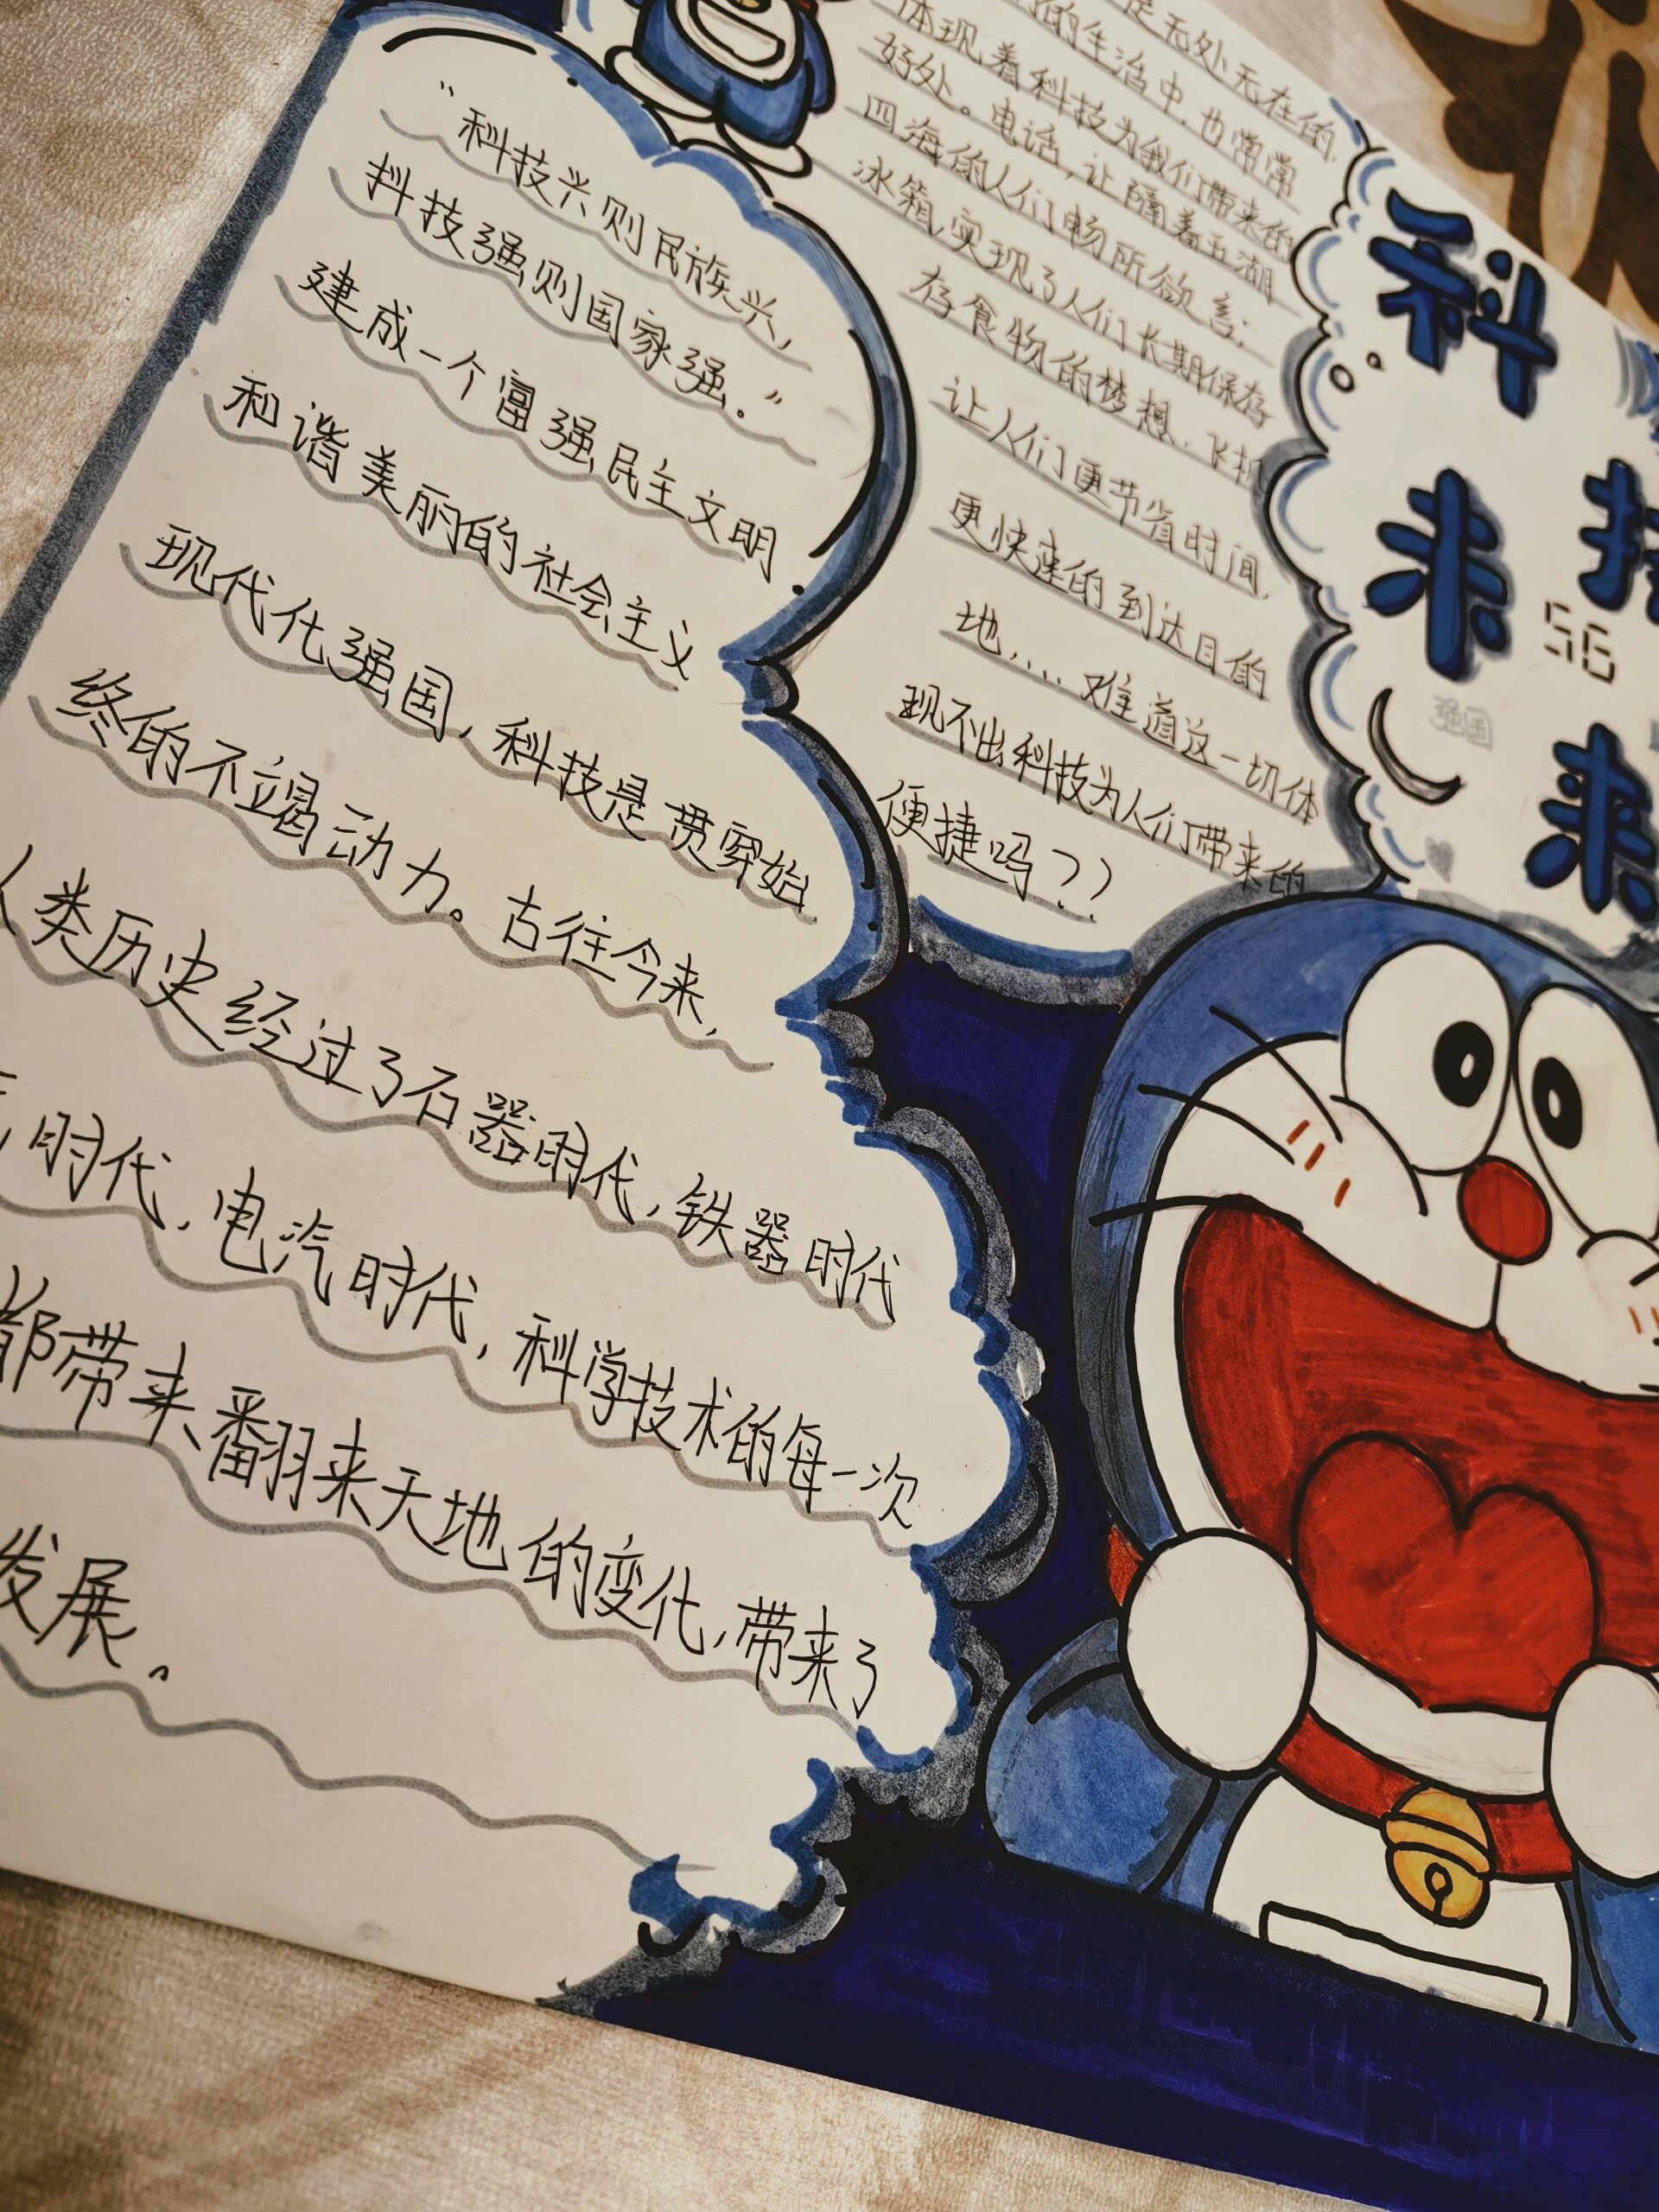 “科技兴则民族兴，
科技强则国家强。”
建成一个富强民主文明
和谐美丽的社会主义
现代化强国，科技是贯穿始
终的不竭动力。古往今来，
人类历史经过了石器时代，铁器时代
时代，电汽时代，科学技术的每一次
都带来翻来天地的变化，带来了
发展。
是无处无在的，
的生活中，也常常
体现着科技为我们带来的
好处。电话，让隔着五湖
四海的人们畅所欲言；
冰箱，实现了人们长期保存
存食物的梦想．飞机
让人们更节省时间，
更快速的到达目的
地．．．．难道这一切体
现不出科技为人们带来的
便捷吗？？
科
来
来
5G
强国